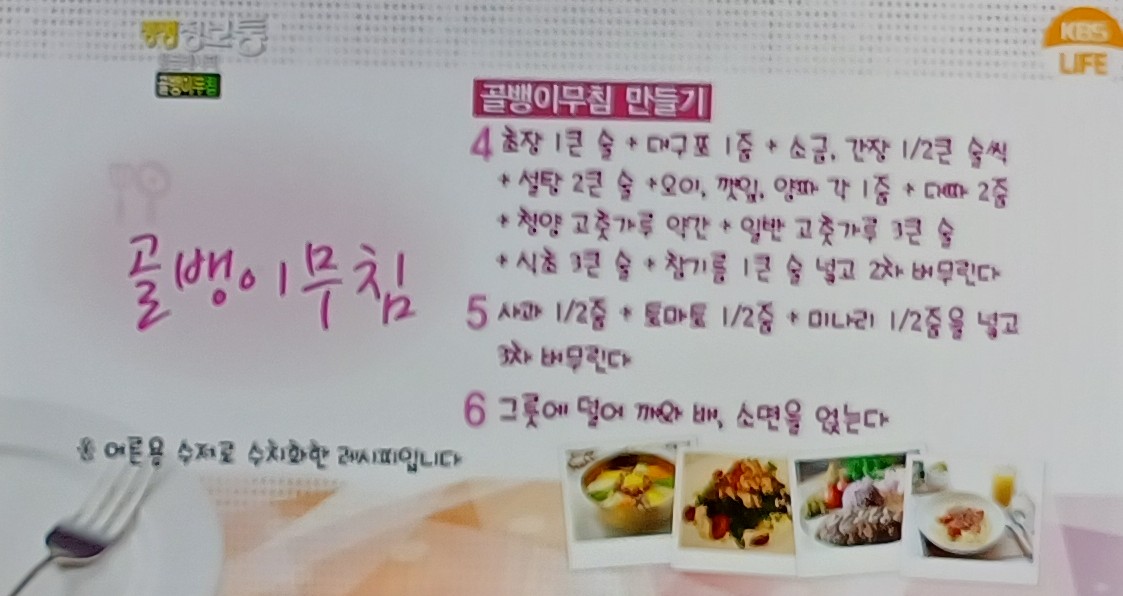 KBS
LIFE
골뱅이무침
골뱅이무침
골뱅이무침 만들기
4 초장 1큰 술 + 대구포 1줌 + 소금, 간장 1/2큰 술씩
+ 설탕 2큰 술 +오이, 깻잎, 양파 각 1줌 + 대파 2줌
+ 청양 고춧가루 약간 + 일반 고춧가루 3큰 술
+ 식초 3큰 술 + 참기름 1큰 술 넣고 2차 버무린다
5 사과 1/2줌 + 토마토 1/2줌 + 미나리 1/2줌을 넣고
3차 버무린다
6 그릇에 덜어 깨와 배, 소면을 얹는다
※ 어른용 수저로 수치화한 레시피입니다